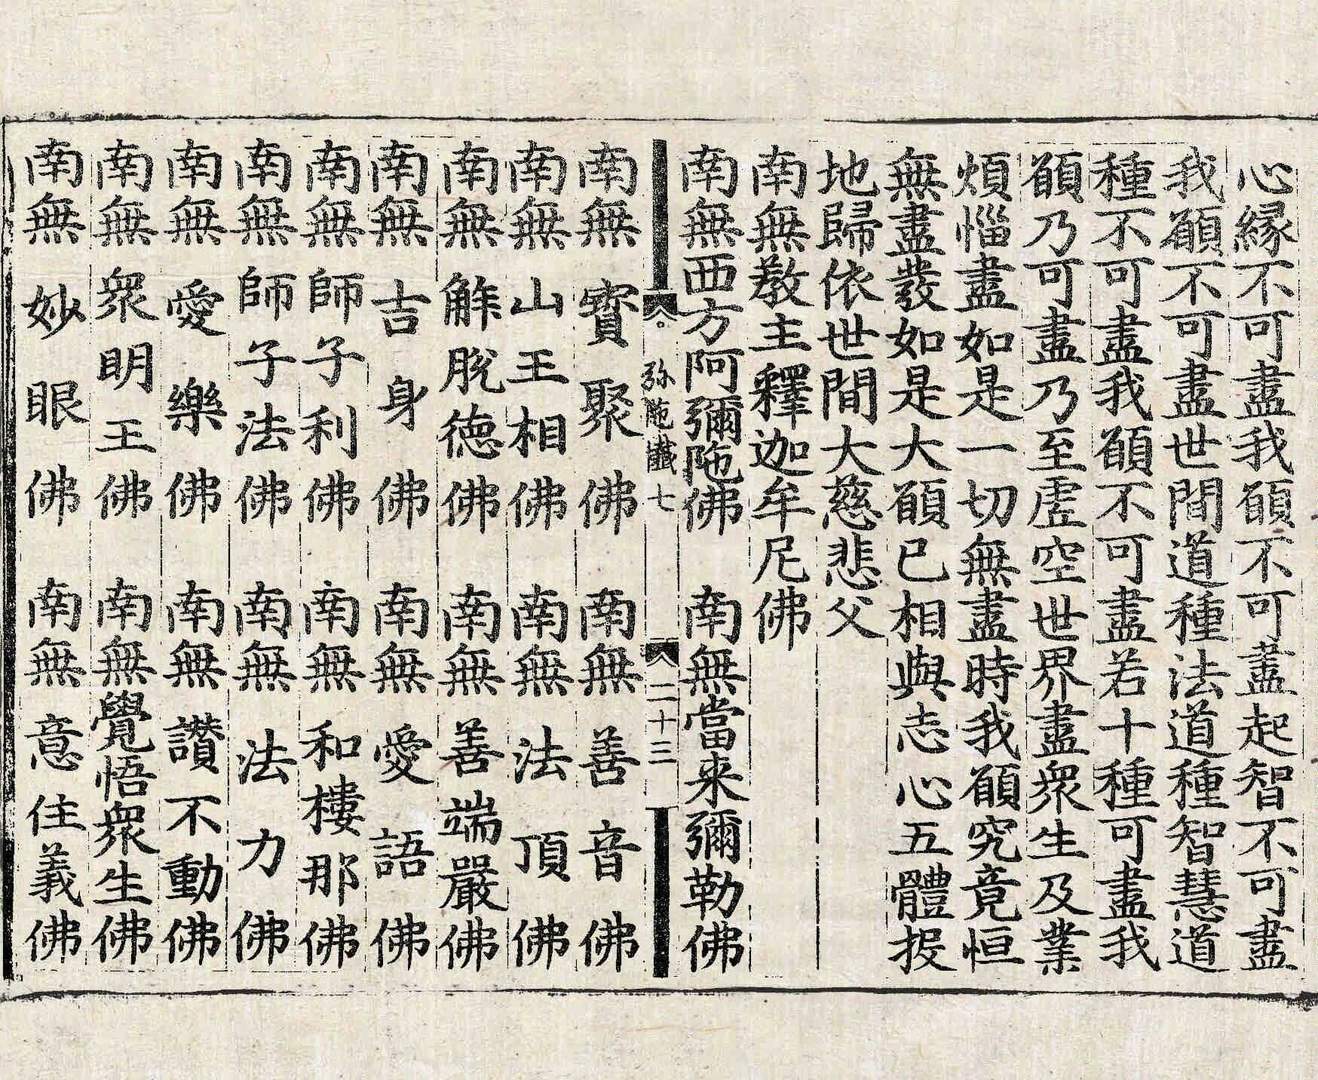 心緣不可盡我願不可盡起智不可盡
我願不可盡世間道種法道種智慧道
種不可盡我願不可盡若十種可盡我
願乃可盡乃至虛空世界盡衆生及業
煩惱盡如是一切無盡時我願究竟恒
無盡發如是大願已相與志心五體投
地歸依世間大慈悲父
南無教主釋迦牟尼佛
南無西方阿彌陀佛　南無當来彌勒佛
弥陁懺七　二十三
南無寶聚佛　南無善音佛
南無山王相佛　南無法頂佛
南無解脫德佛　南無善端嚴佛
南無吉身佛　南無愛語佛
南無師子利佛　南無和樓那佛
南無師子法佛　南無法力佛
南無愛樂佛　南無讃不動佛
南無衆明王佛　南無覺悟衆生佛
南無妙眼佛　南無意住義佛